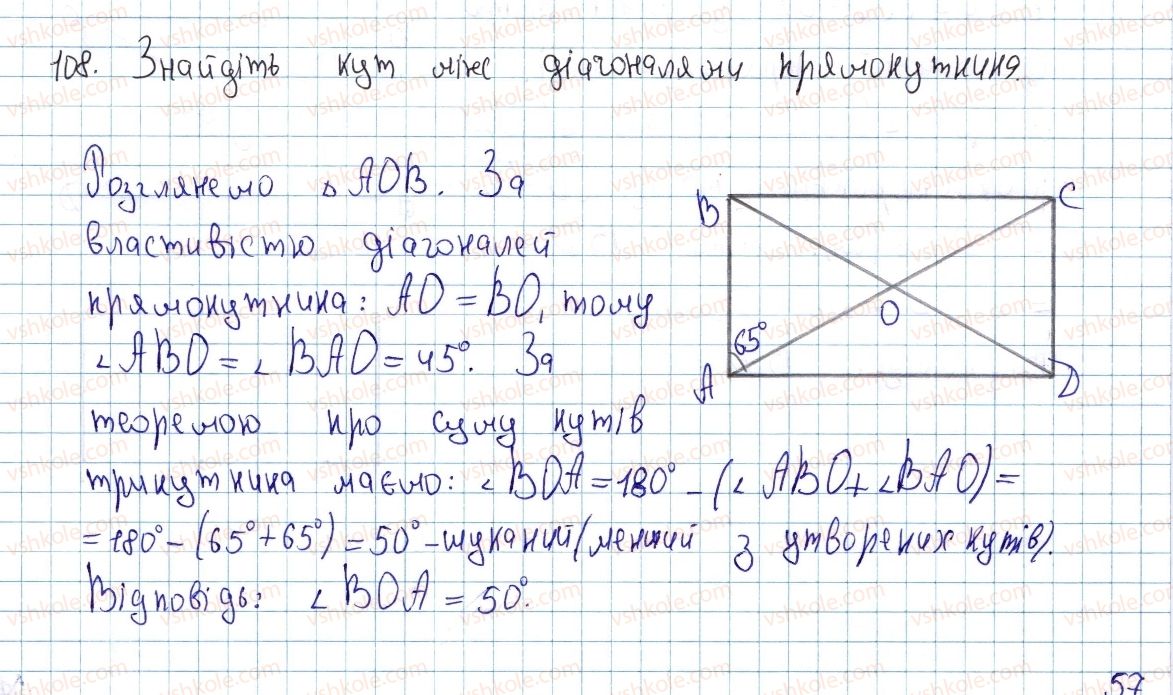 108. Знайдіть кут між діагоналями прямокутника.
Розглянемо △ AOB. За
властивістю діагоналей
прямокутника: AO = BO, тому
∠ABO = ∠BAO = 45°. За
теоремою про суму кутів
трикутника маємо: ∠BOA = 180° - (∠ABO + ∠BAO) =
= 180° - (65° + 65°) = 50° - шуканий (менший з утворених кутів).
Відповідь: ∠BOA = 50°.
B C
O
65°
A D
57
vshkole.com